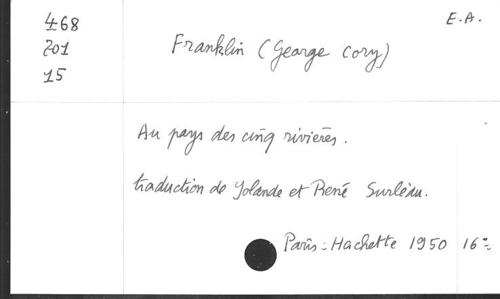 468
E.A.
201
Franklin (George Cory)
15
Au pays des cinq rivières.
traduction de Yolande et René Surleau.
Paris : Hachette 1950 16°